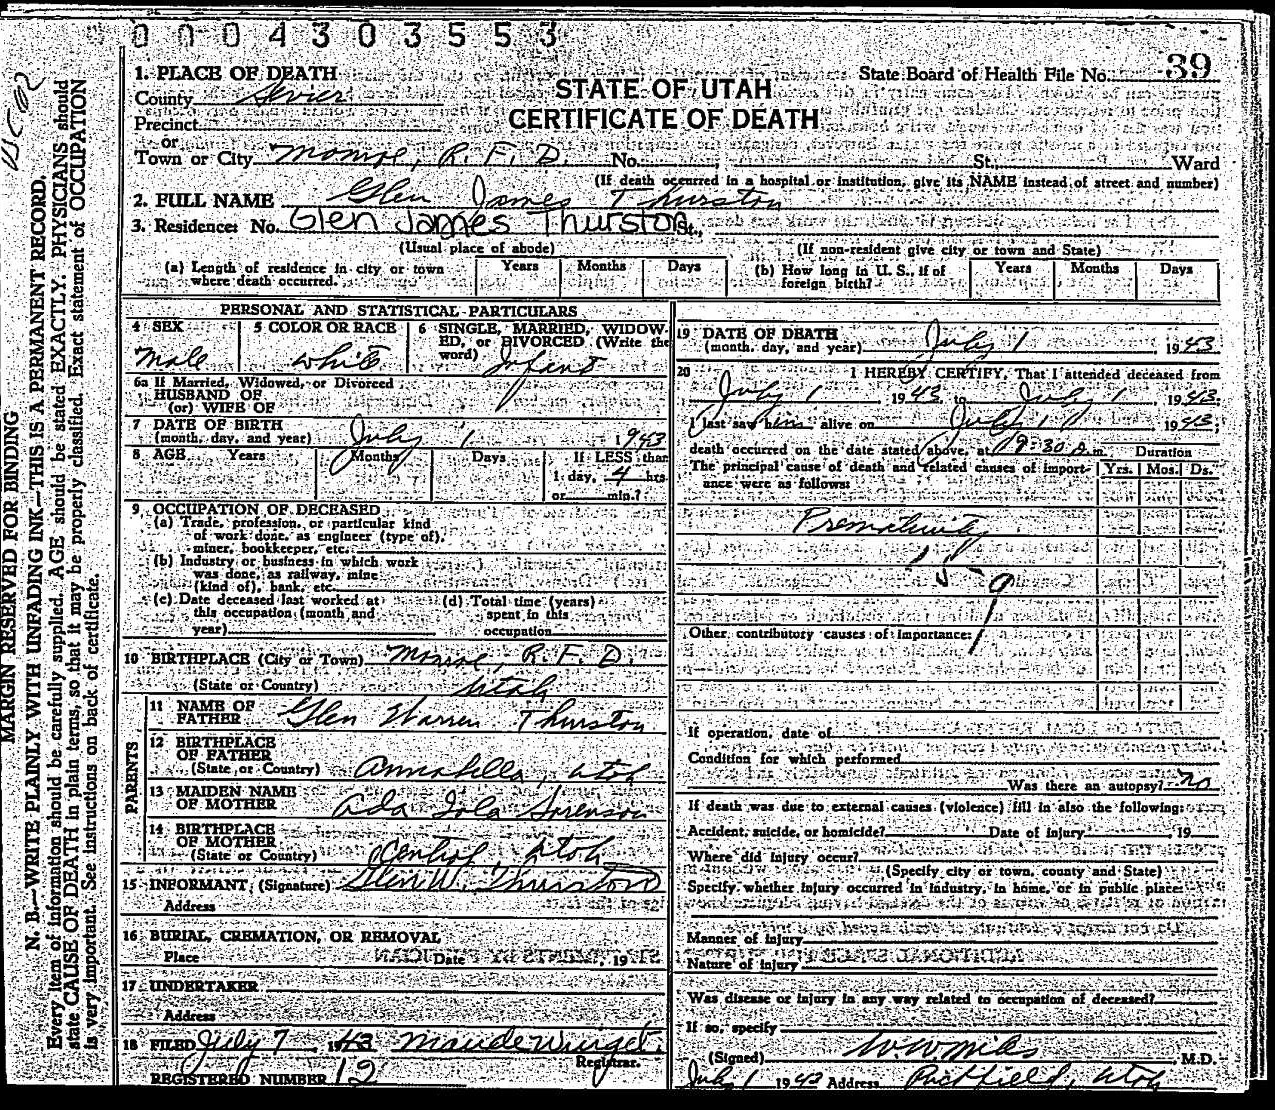 0 0 0 4 3 0 3 5 5 3
39
State Board of Health File No.
STATE OF UTAH
CERTIFICATE OF DEATH
1. PLACE OF DEATH
County Sevier
Precinct
or
Town or City Monroe, R. F. D. No. St. Ward
(If death occurred in a hospital or institution, give its NAME instead of street and number)
2. FULL NAME Glen James Thurston
3. Residence: No. Glen James Thurston St.,
(Usual place of abode) (If non-resident give city or town and State)
(a) Length of residence in city or town where death occurred. Years Months Days
(b) How long in U. S., if of foreign birth? Years Months Days
PERSONAL AND STATISTICAL PARTICULARS
4 SEX
male
5 COLOR OR RACE
white
6 SINGLE, MARRIED, WIDOW-
ED, or DIVORCED (Write the
word) Infant
6a If Married, Widowed, or Divorced
HUSBAND OF
(or) WIFE OF
7 DATE OF BIRTH
(month, day, and year) July 1 1943
8 AGE Years Months Days If LESS than
1 day, 4 hrs.
or min.?
9 OCCUPATION OF DECEASED
(a) Trade, profession, or particular kind
of work done, as engineer (type of),
miner, bookkeeper, etc.
(b) Industry or business in which work
was done, as railway, mine
(kind of), bank, etc.
(c) Date deceased last worked at
this occupation (month and
year)
(d) Total time (years)
spent in this
occupation
10 BIRTHPLACE (City or Town) Monroe, R. F. D.
(State or Country) Utah
PARENTS
11 NAME OF
FATHER Glen Warren Thurston
12 BIRTHPLACE
OF FATHER
(State or Country) Annabella, Utah
13 MAIDEN NAME
OF MOTHER Ada Iola Sorenson
14 BIRTHPLACE
OF MOTHER
(State or Country) Central, Utah
15 INFORMANT (Signature) Glen W. Thurston
Address
16 BURIAL, CREMATION, OR REMOVAL
Place Date , 19
17 UNDERTAKER
Address
18 FILED July 7 1943 Maude Winget.
Registrar.
REGISTERED NUMBER 12
19 DATE OF DEATH
(month, day, and year) July 1 , 1943
20 I HEREBY CERTIFY, That I attended deceased from
July 1 , 1943, to July 1 , 1943;
I last saw him alive on July 1 1943;
death occurred on the date stated above, at 9:30 P.m. Duration
The principal cause of death and related causes of import-
ance were as follows: Yrs. Mos. Ds.
Prematurity
159
Other contributory causes of importance:
If operation, date of
Condition for which performed
Was there an autopsy? no
If death was due to external causes (violence) fill in also the following:
Accident, suicide, or homicide? Date of injury , 19
Where did injury occur?
(Specify city or town, county and State)
Specify whether injury occurred in industry, in home, or in public place:
Manner of injury
Nature of injury
Was disease or injury in any way related to occupation of deceased?
If so, specify
(Signed) W. W. Miles M.D.
July 1 1943 Address Richfield, Utah
MARGIN RESERVED FOR BINDING
N. B.—WRITE PLAINLY WITH UNFADING INK—THIS IS A PERMANENT RECORD.
Every item of information should be carefully supplied. AGE should be stated EXACTLY. PHYSICIANS should
state CAUSE OF DEATH in plain terms, so that it may be properly classified. Exact statement of OCCUPATION
is very important. See instructions on back of certificate.